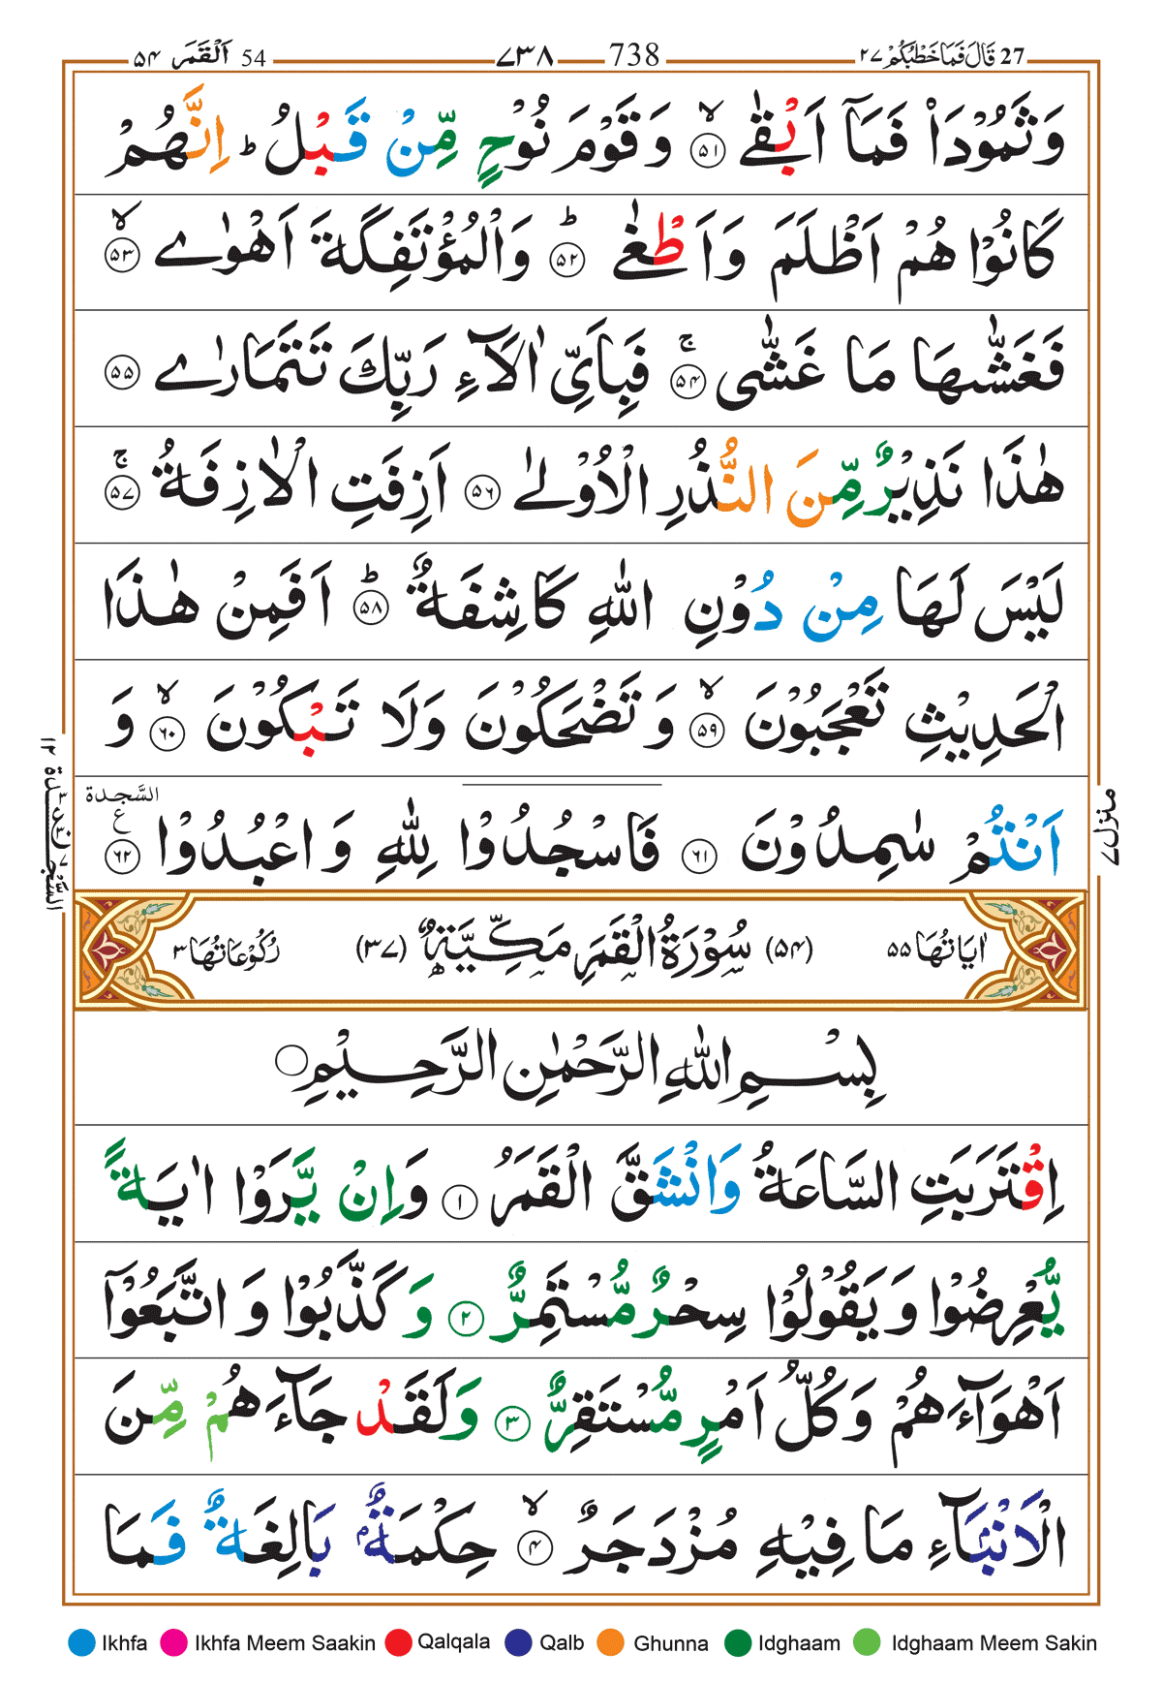 27 قَالَ فَمَا خَطْبُكُمْ ٢٧ 738 ٧٣٨ 54 اَلْقَمَر ٥٤
وَثَمُوْدَا۟ فَمَاۤ اَبْقٰىۙ ﴿٥١﴾ وَقَوْمَ نُوْحٍ مِّنْ قَبْلُؕ اِنَّهُمْ
كَانُوْا هُمْ اَظْلَمَ وَاَطْغٰىؕ ﴿٥٢﴾ وَالْمُؤْتَفِكَةَ اَهْوٰىۙ ﴿٥٣﴾
فَغَشّٰىهَا مَا غَشّٰىۚ ﴿٥٤﴾ فَبِاَىِّ اٰلَآءِ رَبِّكَ تَتَمَارٰى ﴿٥٥﴾
هٰذَا نَذِيْرٌ مِّنَ النُّذُرِ الْاُوْلٰى ﴿٥٦﴾ اَزِفَتِ الْاٰزِفَةُۚ ﴿٥٧﴾
لَيْسَ لَهَا مِنْ دُوْنِ اللّٰهِ كَاشِفَةٌؕ ﴿٥٨﴾ اَفَمِنْ هٰذَا
الْحَدِيْثِ تَعْجَبُوْنَۙ ﴿٥٩﴾ وَتَضْحَكُوْنَ وَلَا تَبْكُوْنَۙ ﴿٦٠﴾ وَ
اَنْتُمْ سٰمِدُوْنَ ﴿٦١﴾ فَاسْجُدُوْا لِلّٰهِ وَاعْبُدُوْا ﴿٦٢﴾ ع السَّجدة
منزل ٧
السَّجْدَة ١٢
اٰيَاتُهَا ٥٥ (٥٤) سُوْرَةُ الْقَمَرِ مَكِّيَّةٌ (٣٧) رُكُوْعَاتُهَا ٣
بِسْمِ اللّٰهِ الرَّحْمٰنِ الرَّحِيْمِ
اِقْتَرَبَتِ السَّاعَةُ وَانْشَقَّ الْقَمَرُ ﴿١﴾ وَاِنْ يَّرَوْا اٰيَةً
يُّعْرِضُوْا وَيَقُوْلُوْا سِحْرٌ مُّسْتَمِرٌّ ﴿٢﴾ وَكَذَّبُوْا وَاتَّبَعُوْۤا
اَهْوَآءَهُمْ وَكُلُّ اَمْرٍ مُّسْتَقِرٌّ ﴿٣﴾ وَلَقَدْ جَآءَهُمْ مِّنَ
الْاَنْۢبَآءِ مَا فِيْهِ مُزْدَجَرٌۙ ﴿٤﴾ حِكْمَةٌۢ بَالِغَةٌ فَمَا
Ikhfa Ikhfa Meem Saakin Qalqala Qalb Ghunna Idghaam Idghaam Meem Sakin